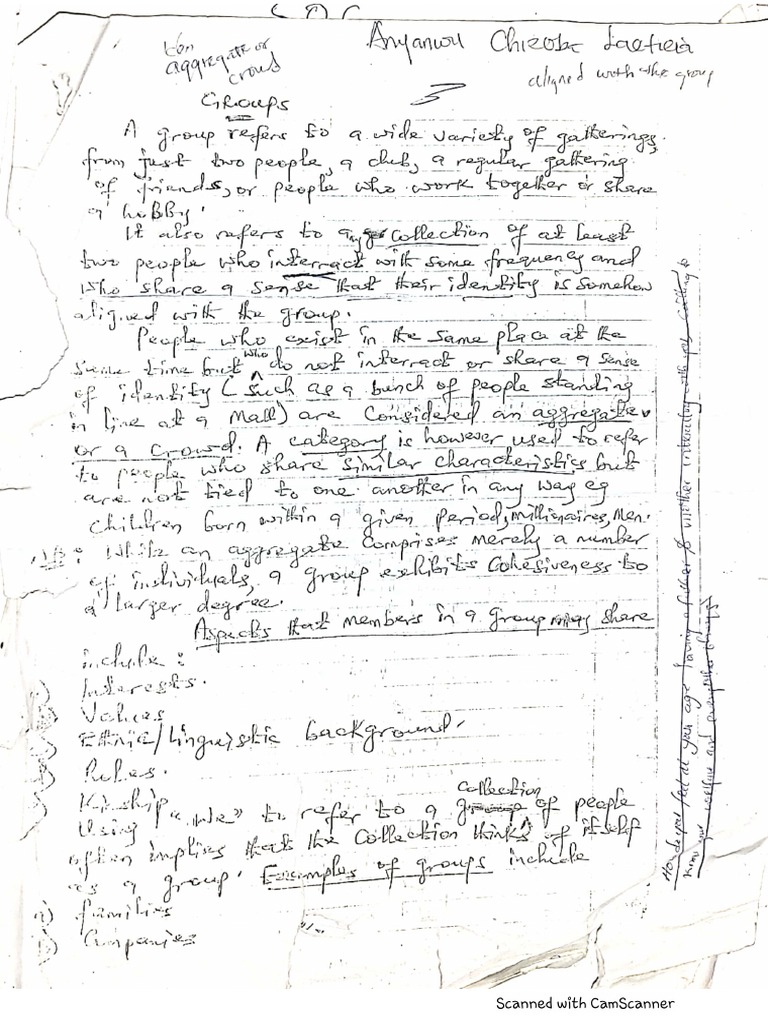 aggregate or
crowd
Anyanwu Chizobe Laeticia
aligned with the group
GROUPS
A group refers to a wide variety of gatherings,
from just two people, a club, a regular gathering
of friends, or people who work together or share
a hobby.
It also refers to any collection of at least
two people who interract with some frequency and
who share a sense that their identity is somehow
aligned with the group.
People who exist in the same place at the
same time but who do not interract or share a sense
of identity (such as a bunch of people standing
in line at a Mall) are considered an aggregate
or a crowd. A category is however used to refer
to people who share similar characteristics but
are not tied to one another in any way eg
children born within a given period, millionaires, Men.
NB: While an aggregate comprises merely a number
of individuals, a group exhibits cohesiveness to
a larger degree.
Aspects that members in a group may share
include:
Interests.
Values
Ethnic/linguistic background.
Rules.
Kinship
Using "we" to refer to a collection of people
often implies that the collection thinks of itself
as a group. Examples of groups include
families
Companies
at your age having a father &
and everything
Scanned with CamScanner